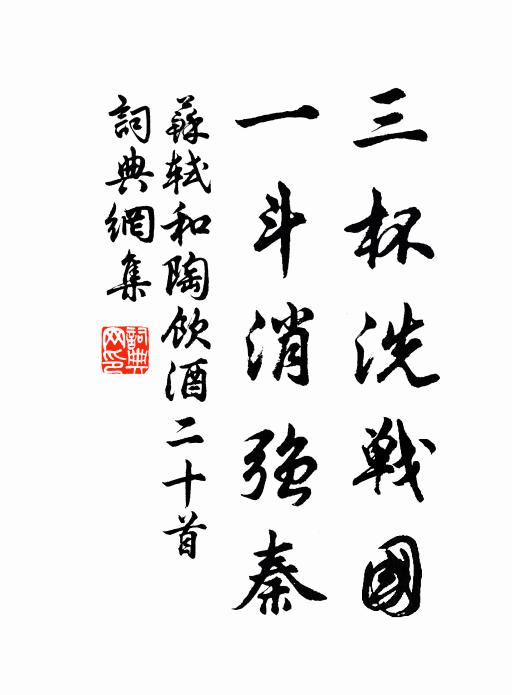 三杯洗戰國
一斗消強秦
蘇軾和陶飲酒二十首
詞典網集
詞典
网印